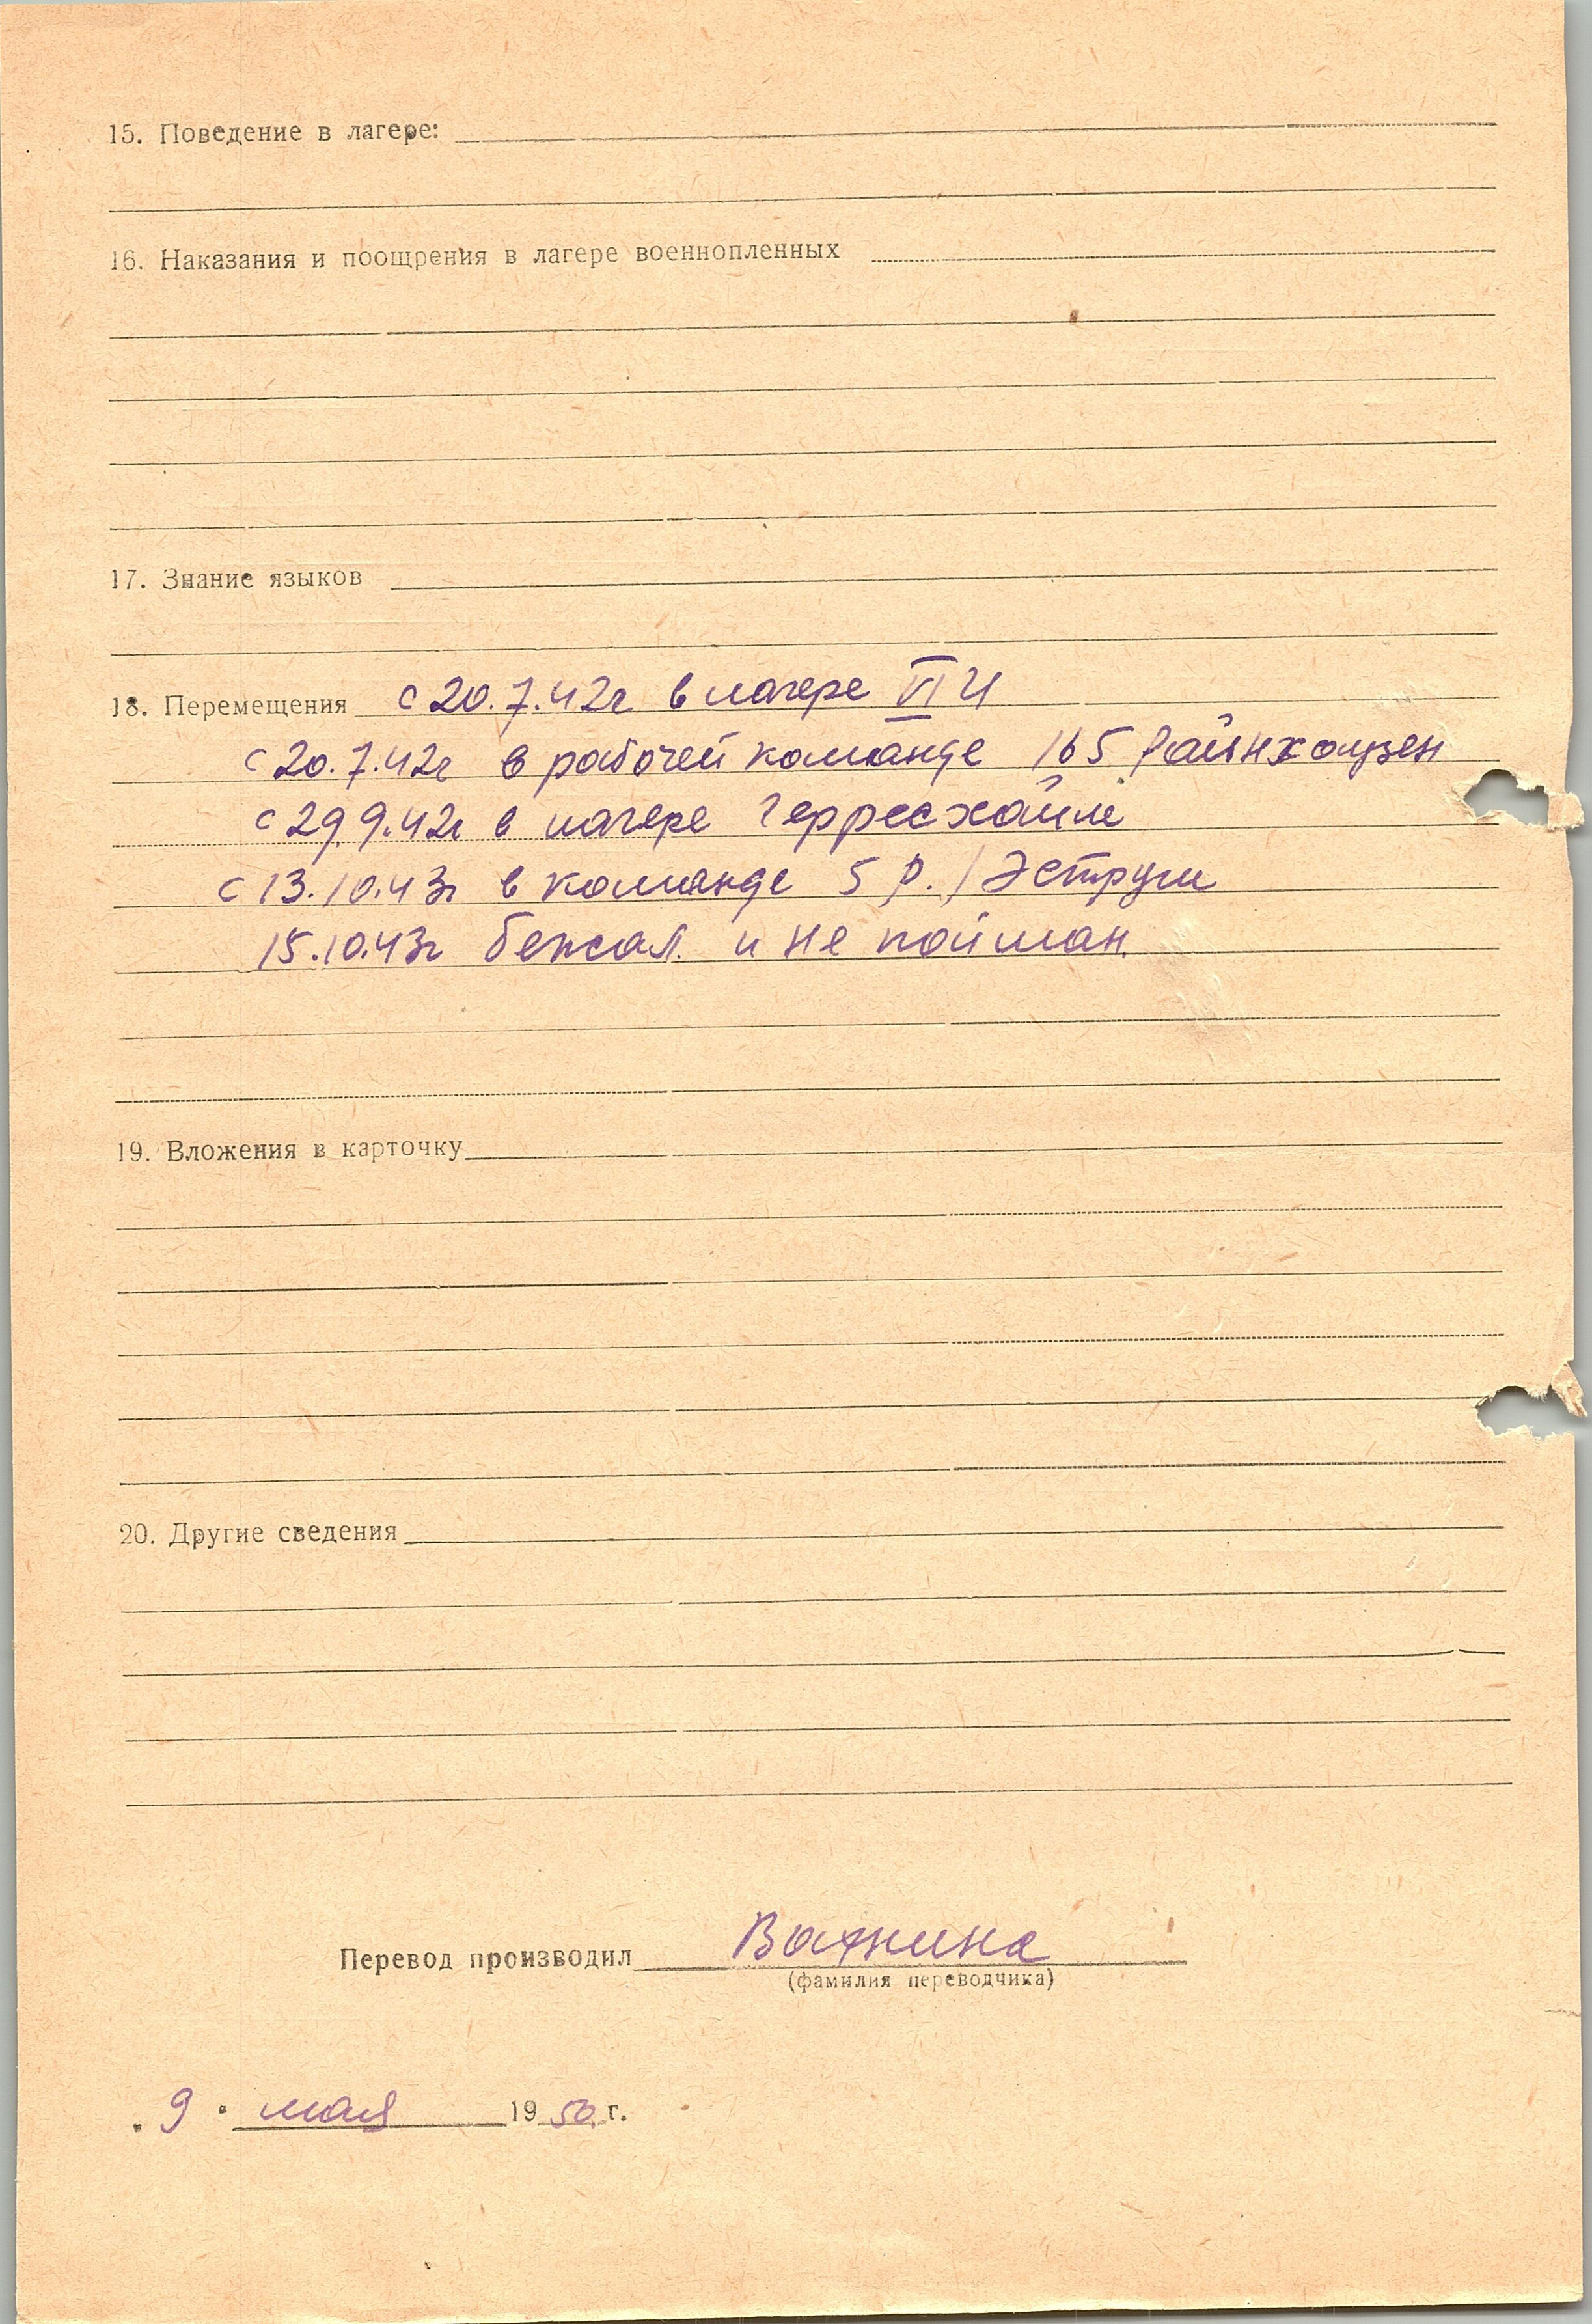 15. Поведение в лагере:
16. Наказания и поощрения в лагере военнопленных
17. Знание языков
18. Перемещения с 20.7.42г в лагере VI И
с 20.7.42г в рабочей команде 165 Райнхаузен
с 29.9.42г в лагере Герресхайме
с 13.10.43г в команде 5 Р./Эструм
15.10.43г бежал. и не пойман.
19. Вложения в карточку
20. Другие сведения
Перевод производил Важнина
(фамилия переводчика)
"9" мая 1950 г.